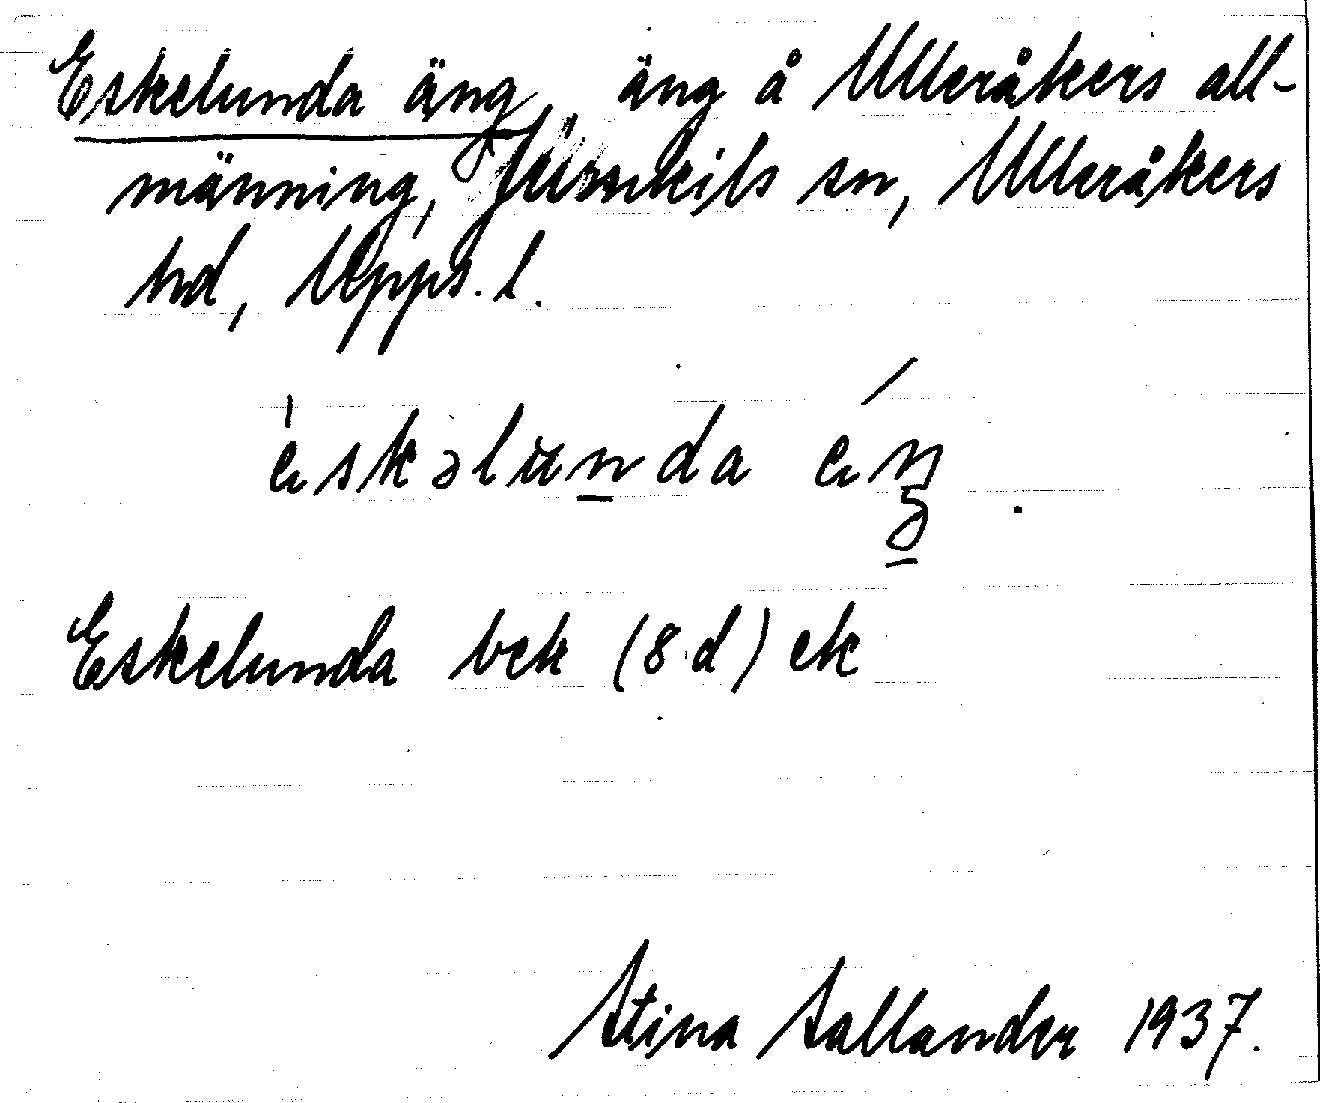 Eskelunda äng, äng å Ulleråkers all-
männing, Jumkils sn, Ulleråkers
hd, Upps. l.
ɛskəlunda ɛŋ
Eskelunda bek (8 d) ek
Stina Sallander 1937.